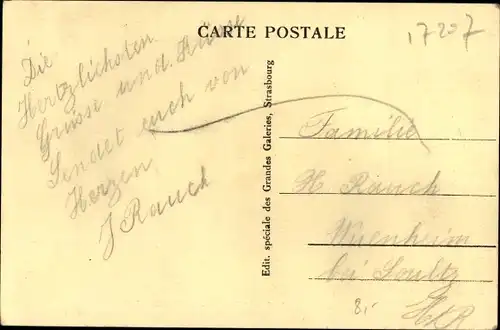 CARTE POSTALE
17207
Die
Hertzlichsten
Grüsse und Küsse
Sendet euch von
Herzen
J Rauch
Edit. spéciale des Grandes Galeries, Strasbourg
Familie
H. Rauch
Wuenheim
bei Soultz
H/R
8,-